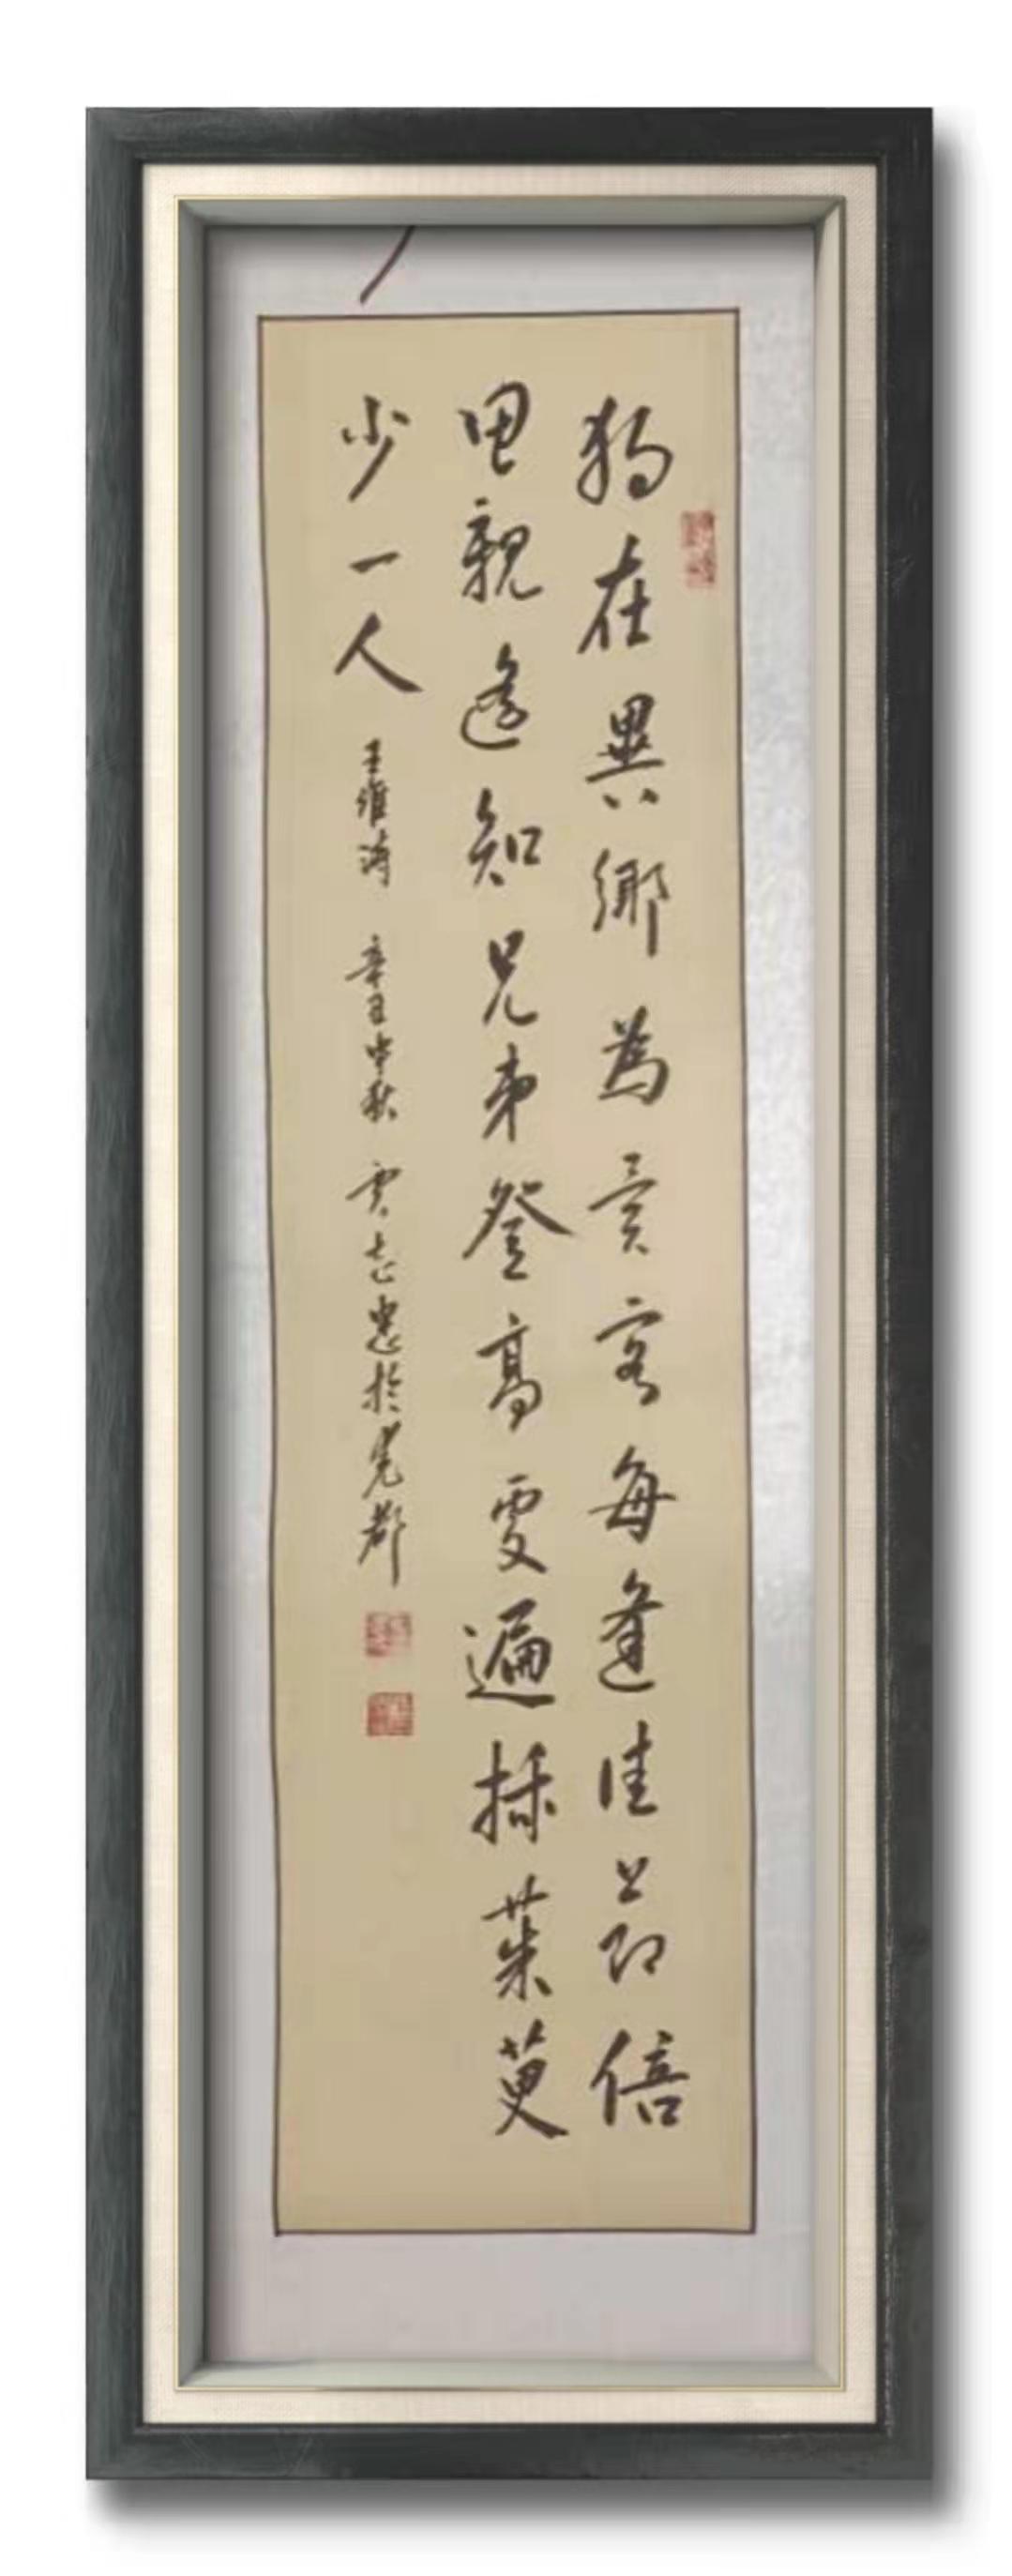 獨在異鄉為異客每逢佳節倍
思親遥知兄弟登高處遍插茱萸
少一人 王維詩 辛丑中秋 志忠於堯都